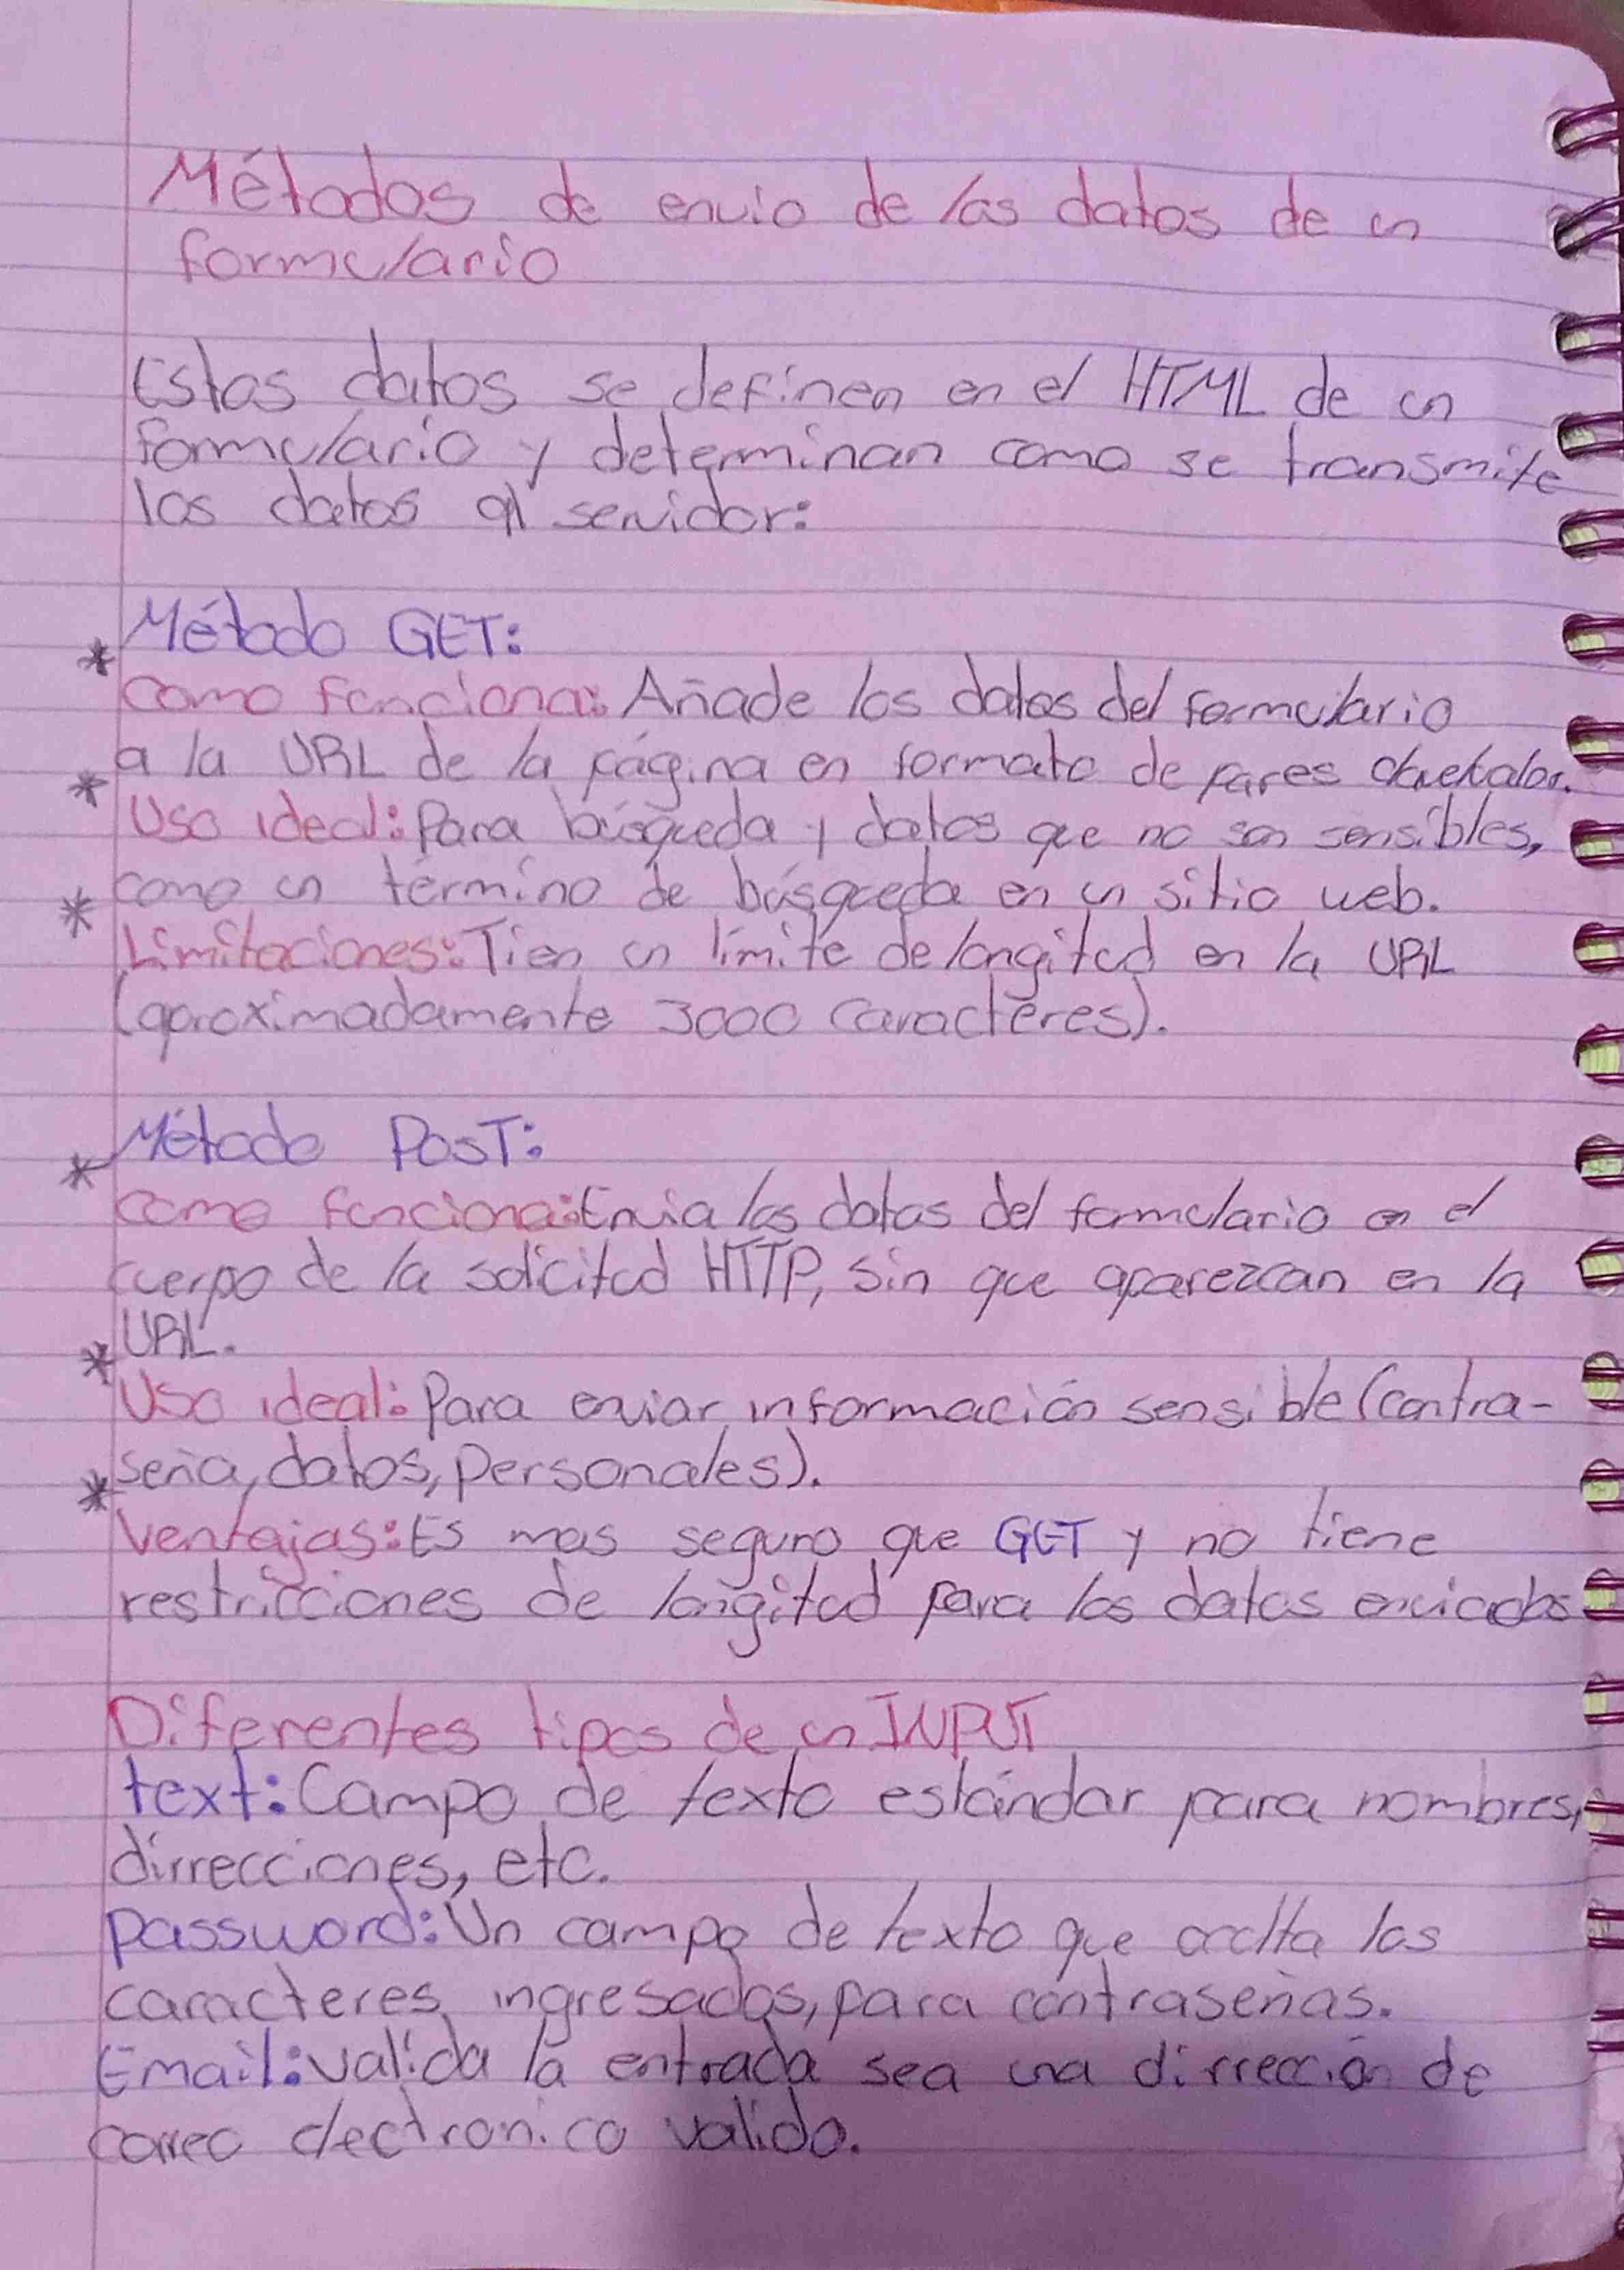 Métodos de envio de los datos de un
formulario
Estos datos se definen en el HTML de un
formulario y determinan como se transmite
los datos al servidor:
Método GET:
* como funciona: Añade los datos del formulario
a la URL de la página en formato de pares
* Uso ideal: Para búsqueda y datos que no son sensibles,
como un término de búsqueda en un sitio web.
* Limitaciones: Tien un límite de longitud en la URL
(aproximadamente 3000 caracteres).
Método POST:
* como funciona: Envia los datos del formulario en el
cuerpo de la solicitud HTTP, sin que aparezcan en la
URL.
* Uso ideal: Para enviar información sensible (contra-
seña, datos, personales).
* Ventajas: Es mas seguro que GET y no tiene
restricciones de longitud para los datos enviados
Diferentes tipos de un INPUT
text: Campo de texto estándar para nombres,
dirrecciones, etc.
password: Un campo de texto que oculta los
caracteres ingresados, para contraseñas.
Email: valida la entrada sea una dirrección de
correo electronico valido.